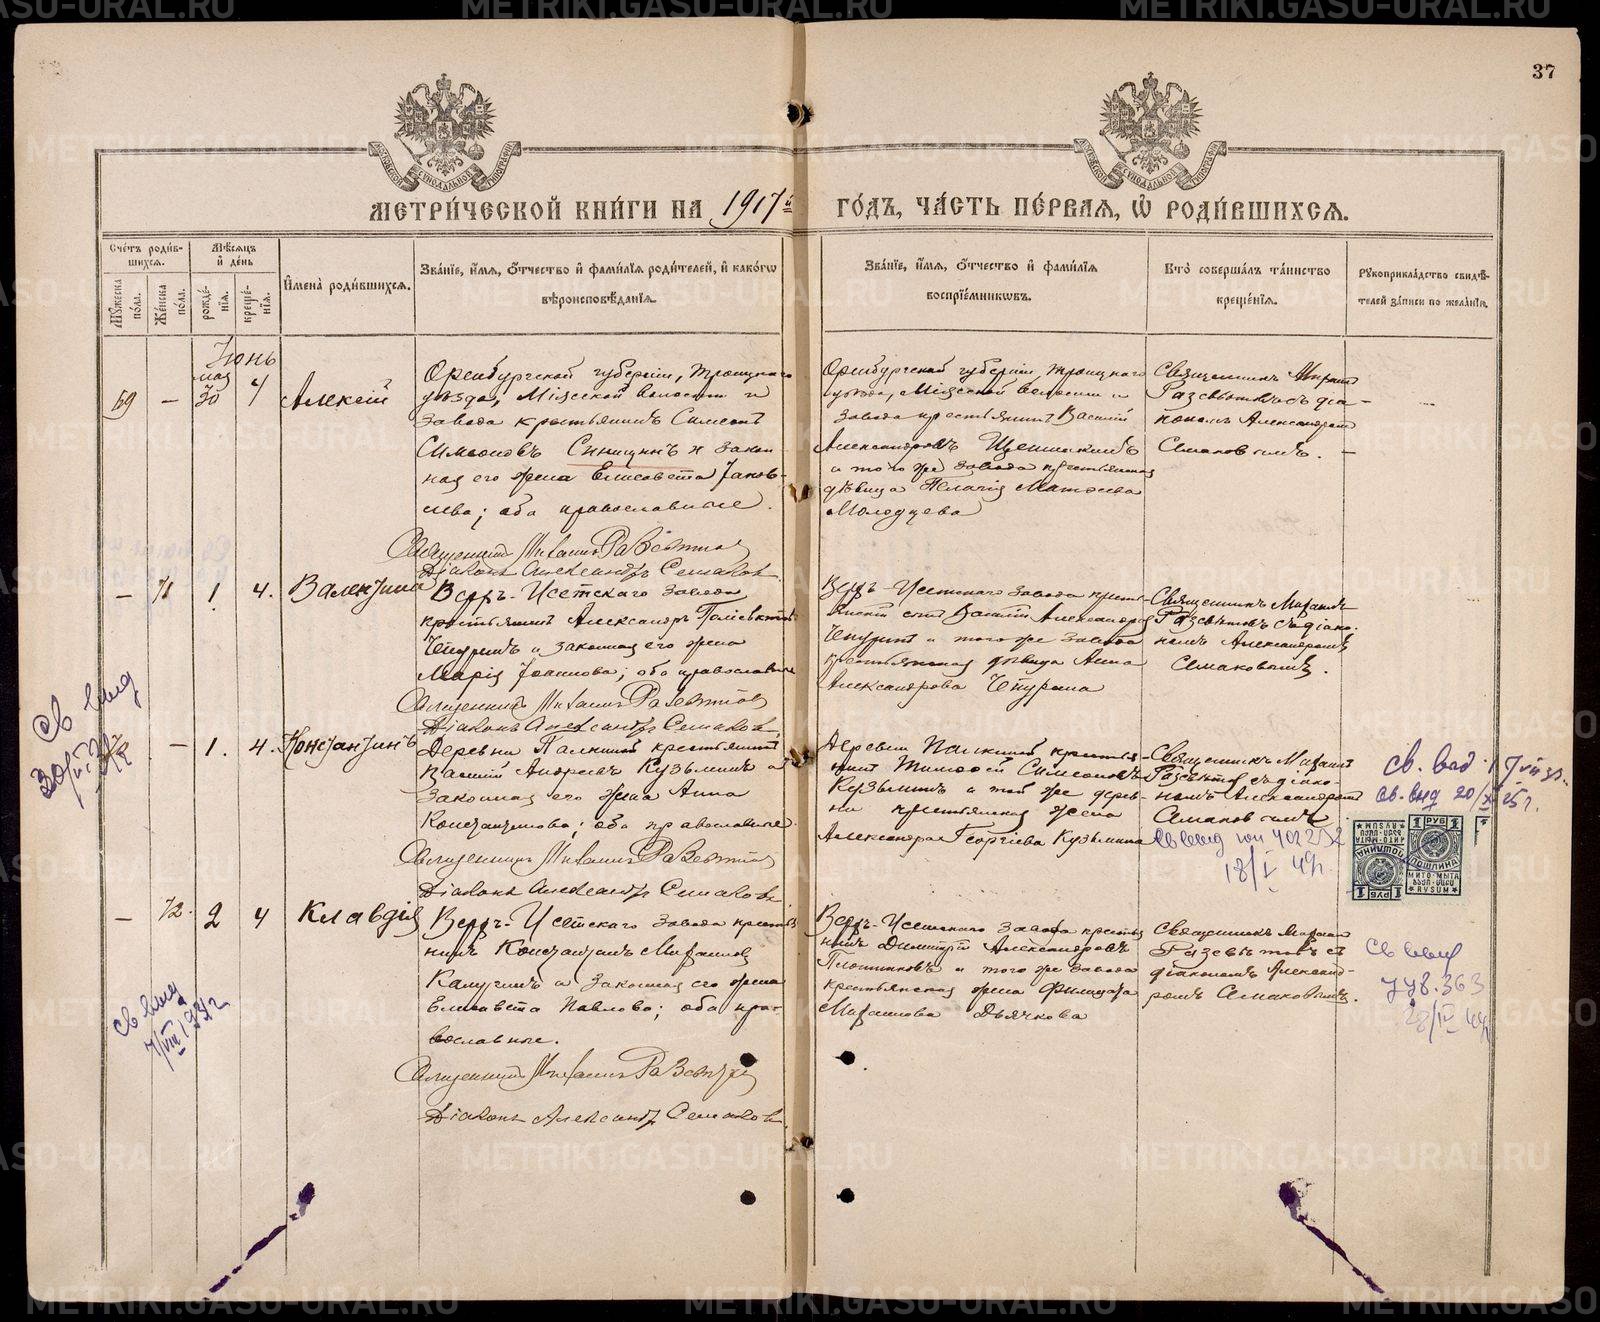 37
МОСКОВСКОЙ СѴНОДАЛЬНОЙ ТИПОГРАФІИ
МОСКОВСКОЙ СѴНОДАЛЬНОЙ ТИПОГРАФІИ
МЕТРИ́ЧЕСКОЙ КНИ́ГИ НА 1917й ГО́ДЪ, ЧА́СТЬ ПЕ́РВАЯ, Ѡ҆ РОДИ́ВШИХСЯ.
Сче́тъ роди́в-
шихся.
Му́жеска по́ла.
Же́нска по́ла.
Мѣ́сяцъ и҆ де́нь
рожде́-
нія.
креще́-
нія.
И҆мена̀ роди́вшихся.
Зва́нїе, и҆́мя, ѻ҆́тчество и҆ фами́лїя роди́телей, и҆ како́гѡ
вѣроисповѣ́данїя.
Зва́нїе, и҆́мя, ѻ҆́тчество и҆ фами́лїя
воспрїе́мниковъ.
Кто̀ соверша́лъ та́инство
креще́нїя.
Рукоприкла́дство свидѣ́-
телей за́писи по жела́нїю.
Іюнь
69 — мая 30 4 Алексій
Оренбургской губерніи, Троицкаго
уѣзда, Міясской волости и
завода крестьянинъ Симеонъ
Симеоновъ Синицинъ и закон-
ная его жена Елисавета Іаков-
лева; оба православные.
Священникъ Михаилъ
Діаконъ Александръ Семаков
Оренбургской губерніи, Троицкаго
уѣзда, Міясской волости и
завода крестьянинъ Василій
Александровъ
и того же завода крестьянская
дѣвица Пелагія Матѳеева
Молодцева
Священникъ Михаилъ
съ діа-
кономъ Александромъ
Семаковымъ. —
— 71 1 4. Валентина
Верхъ-Исетскаго завода
крестьянинъ Александръ
Чепуринъ и законная его жена
Марія Іоаннова; оба православные
Священникъ Михаилъ
Діаконъ Александръ Семаков.
Верхъ-Исетскаго завода кресть-
Василій Александровъ
Чепуринъ и того же завода
крестьянская дѣвица Анна
Александрова Чепурина
Священникъ Михаилъ
съ діако-
номъ Александромъ
Семаковымъ.
— 1. 4. Константинъ
Деревни Палкиной крестьянинъ
Василій Андреевъ Кузьминъ и
законная его жена Анна
Константинова; оба православные.
Священникъ Михаилъ
Діаконъ Александръ Семаков
Деревни Палкиной кресть-
янинъ Тимоѳей Симеоновъ
Кузьминъ и той же дерев-
ни крестьянская жена
Александра Георгіева Кузьмина
Священникъ Михаилъ
съ діако-
номъ Александромъ
Семаковымъ
18/I 49г.
св. выд 20/X 25г.
1 РУБ
ПОШЛИНА
МИТО-МЫТА
RVSUM
— 72. 2 4 Клавдія
Верхъ-Исетскаго завода кресть-
нинъ Константинъ Михаиловъ
Калугинъ и законная его жена
Елисавета Павлова; оба пра-
вославные.
Священникъ Михаилъ
Діаконъ Александръ Семаков.
Верхъ-Исетскаго завода кресть-
нинъ Димитрій Александровъ
Плотниковъ и того же завода
крестьянская жена Филицата
Михаилова Дьячкова
Священникъ Михаилъ
съ
діакономъ Александ-
ромъ Семаковымъ.
св выд
778.363
28/IV 44г
св выд
7/VIII 1931г
METRIKI.GASO-URAL.RU